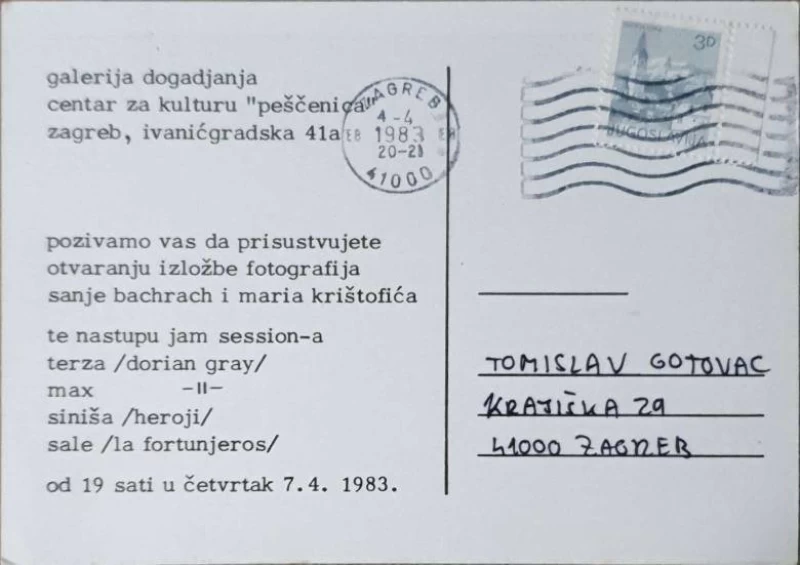 galerija dogadjanja
centar za kulturu "peščenica"
zagreb, ivanićgradska 41a
ZAGREB
4-4
1983
20-21
41000
3D
JUGOSLAVIJA
pozivamo vas da prisustvujete
otvaranju izložbe fotografija
sanje bachrach i maria krištofića
te nastupu jam session-a
terza /dorian gray/
max -II-
siniša /heroji/
sale /la fortunjeros/
od 19 sati u četvrtak 7.4. 1983.
TOMISLAV GOTOVAC
KRAJIŠKA 29
41000 ZAGREB